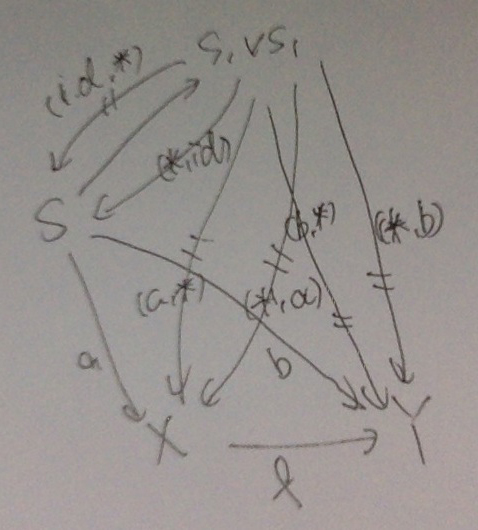 S₁ ∨ S₁
(id, *)
(*, id)
S
(b, *)
(*, b)
(a, *)
(*, a)
a
b
X
Y
f